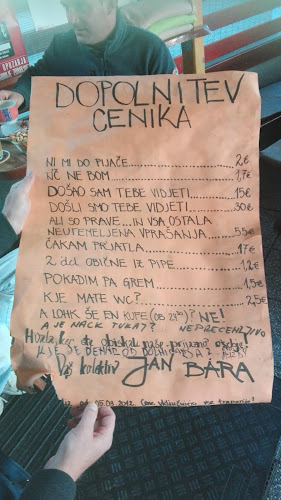 DOPOLNITEV
CENIKA
NI MI DO PIJAČE.........2€
NČ NE BOM.........1,7€
DOŠAO SAM TEBE VIDJETI.......15€
DOŠLI SMO TEBE VIDJETI.......30€
ALI SO PRAVE...IN VSA OSTALA
NEUTEMELJENA VPRAŠANJA.......55€
ČAKAM PRJATLA.........17€
2 dcl OBIČNE IZ PIPE.........1,2€
POKADIM PA GREM.........1,5€
KJE MATE WC?.........2,5€
A LOHK ŠE EN KUPE (OB 24h)? NE!
A JE HACK TUKAJ? NEPRECENLJIVO
Hvala, ker ste obiskali naše prijazno osebje!
Vaš kolektiv JAN BÁRA
od 05.03.2012. Cene vključujejo vse